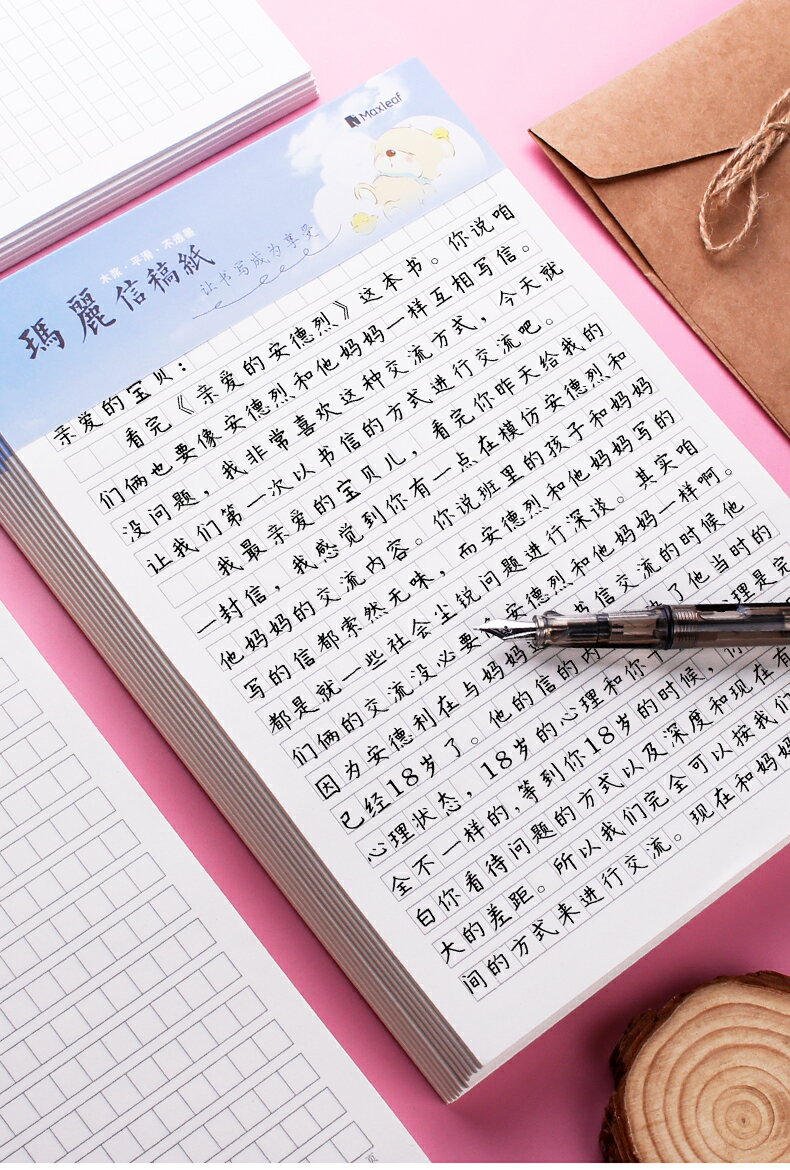 Maxleaf
木浆·平滑·不洇墨
瑪麗信稿紙
让书写成为享受
亲爱的宝贝：
看完《亲爱的安德烈》这本书。你说咱
们俩也要像安德烈和他妈妈一样互相写信。
没问题，我非常喜欢这种交流方式，今天就
让我们第一次以书信的方式进行交流吧。
我最亲爱的宝贝儿，看完你昨天给我的
一封信，我感觉到你有一点在模仿安德烈和
他妈妈的交流内容。你说班里的孩子和妈妈
写的信都索然无味，而安德烈和他妈妈写的
都是就一些社会尘锐问题进行深谈。其实咱
们俩的交流没必要 安德烈和他妈妈一样啊。
因为安德利在与妈妈 书信交流的时候他
已经18岁了。他的信的内 了他当时的
心理状态，18岁的心理和你 理是完
全不一样的，等到你18岁的时候，
白你看待问题的方式以及深度和现在有
大的差距。所以我们完全可以按我们
间的方式来进行交流。现在和妈妈
页